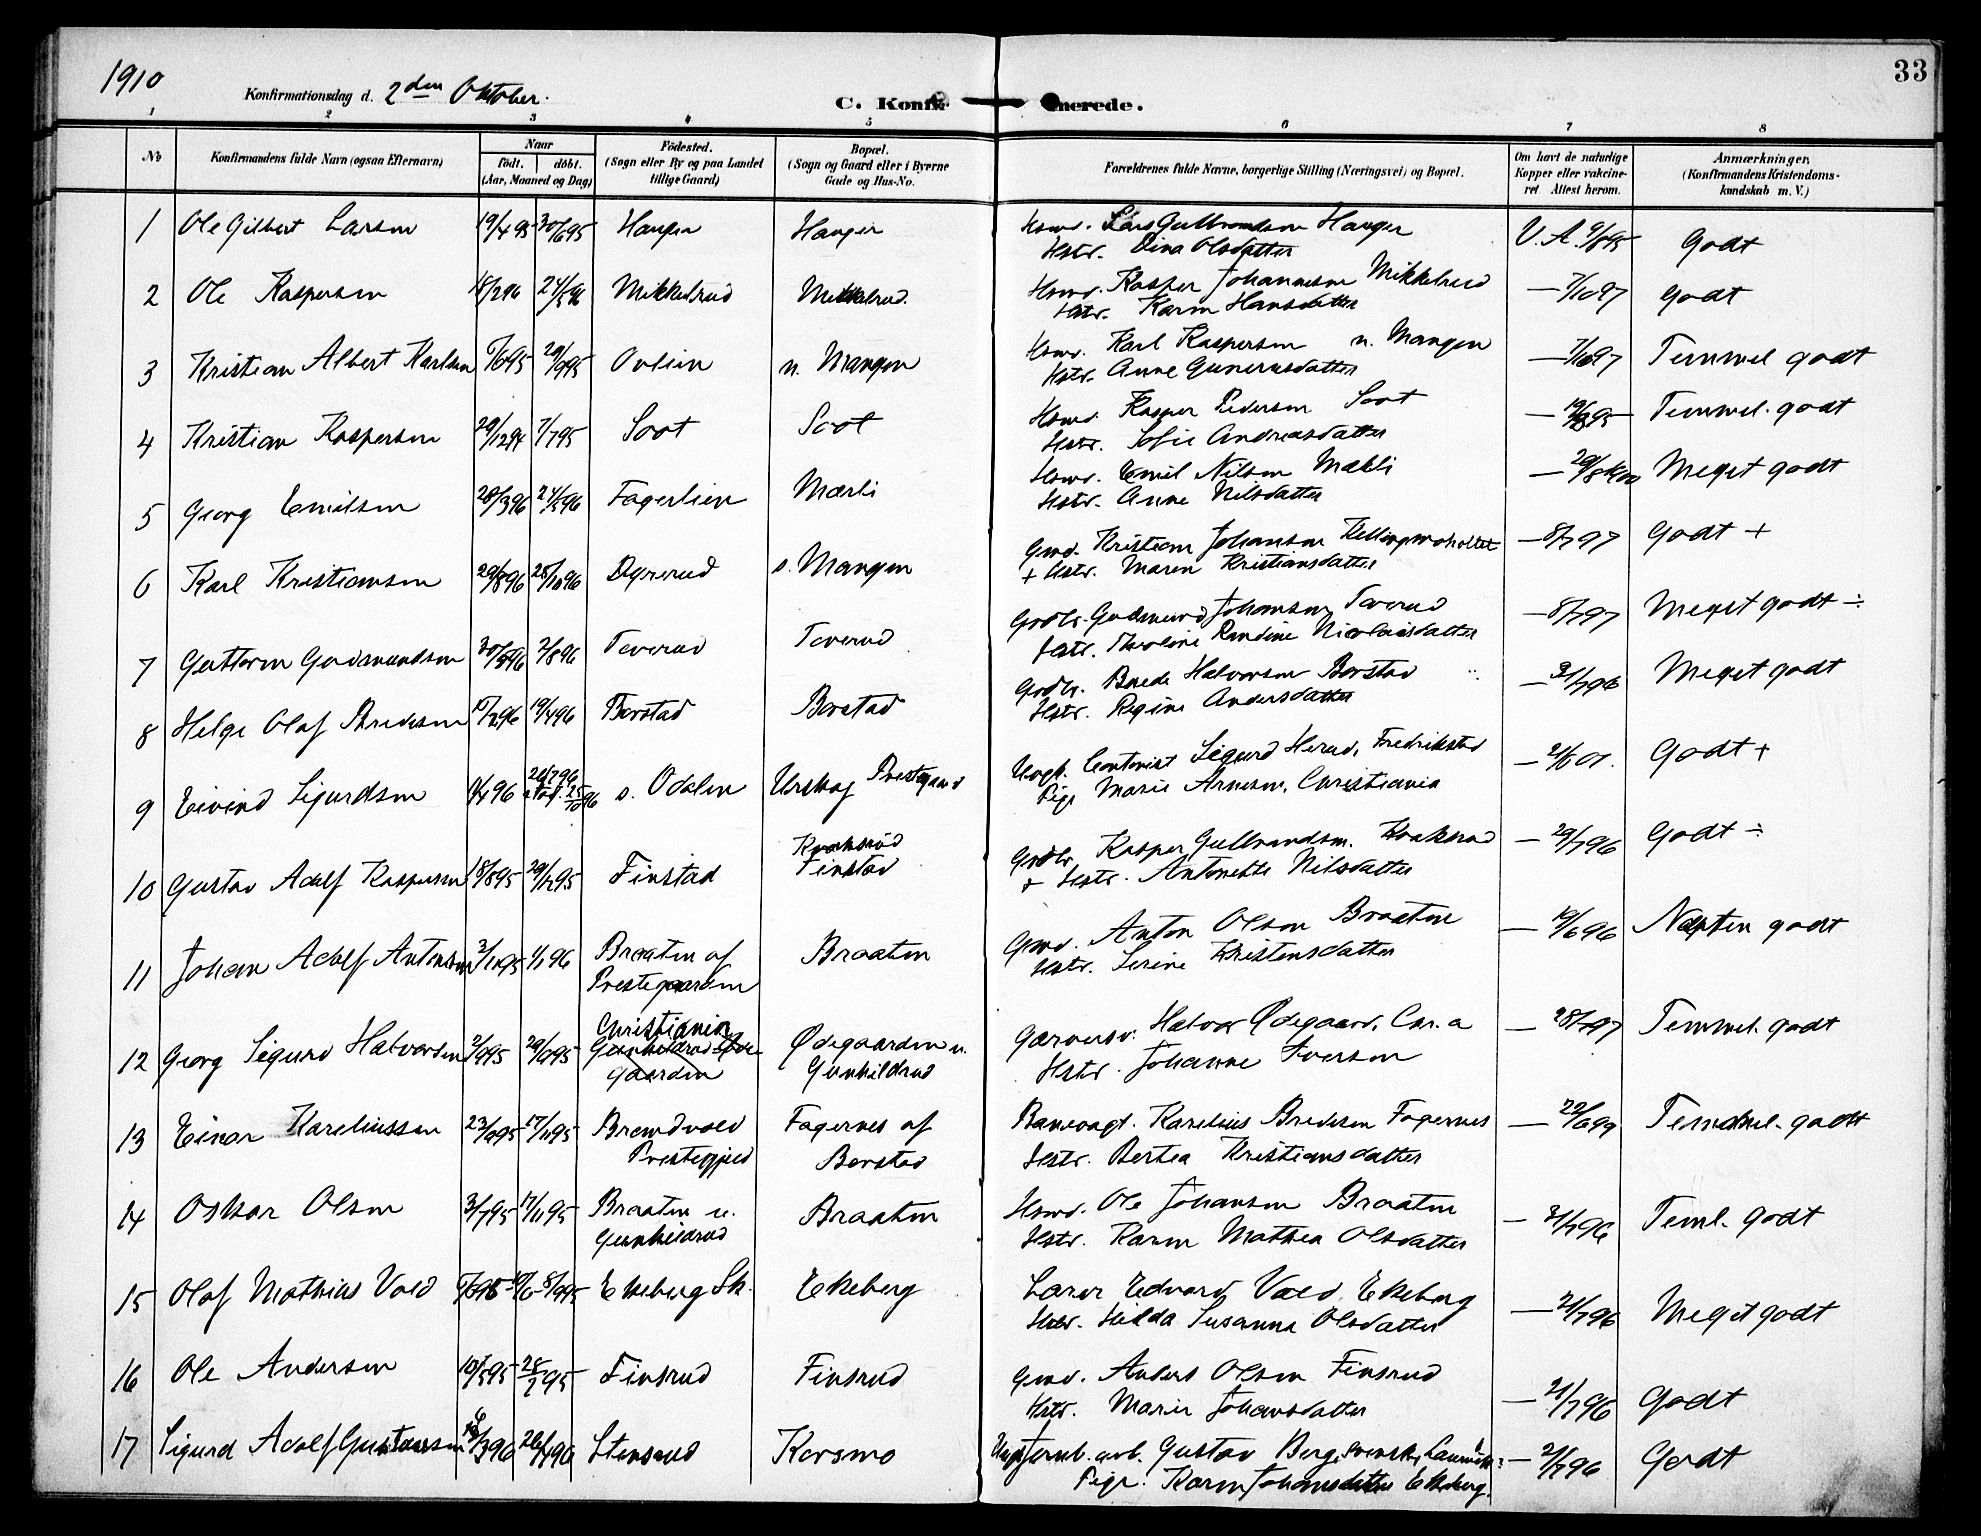 1910
33
Konfirmationsdag d. 2den Oktober.
C. Konfirmerede.
1 2 3 4 5 6 7 8
No
Konfirmandens fulde Navn (ogsaa Efternavn)
Naar
födt. döbt.
(Aar, Maaned og Dag)
Födested.
(Sogn eller By og paa Landet
tillige Gaard)
Bopæl.
(Sogn og Gaard eller i Byerne
Gade og Hus-No.
Forældrenes fulde Navne, borgerlige Stilling (Næringsvei) og Bopæl.
Om havt de naturlige
Kopper eller vakcine-
ret Attest herom.
Anmærkninger,
(Konfirmandens Kristendoms-
kundskab m. V.)
1 Ole Gilbert Larsen 19/4 95 30/6 95 Haugen Hanger Hsmd. Lars Gulbrandsen Hanger V. A. Godt
Hstr. Dina Olsdatter
2 Ole Kaspersen 18/2 96 24/5 96 Mikkelrud Mikkelrud. Hsmd. Kasper Johannesen Mikkelrud — 7/10 97 Godt
Hstr. Karen Hansdatter
3 Kristian Albert Karlsen 29/9 95 Ovlien n. Mangen Hsmd. Karl Kaspersen n. Mangen — 7/10 97 Temmel godt
Hstr. Anne Gunerusdatter
4 Kristian Kaspersen 29/12 94 7/7 95 Soot Soot Hsmd. Kasper Pedersen Soot Temmel. godt
Hstr. Sofie Andreasdatter
5 Georg Emilsen 28/3 96 24/5 96 Fagerlien Mærli Hsmd. Emil Nilsen Mærli Meget godt
Hstr. Anne Nilsdatter
6 Karl Kristiansen 29/8 96 25/10 96 Dyrerud s. Mangen Gmd. Kristian Johansen — 8/7 97 Godt +
+ Hstr. Maren Kristiansdatter
7 Guttorm Gudmundsen 30/5 96 2/8 96 Taverud Taverud Grdbr. Gudmund Johansen Taverud — 8/7 97 Meget godt ÷
Hstr. Karoline Randine Nicolaisdatter
8 Helge Olaf Bredesen 15/2 96 19/4 96 Borstad Borstad Grdbr. Brede Halvorsen Borstad — 31/7 96 Meget godt
Hstr. Regine Andersdatter
9 Eivind Sigurdsen 9/4 96 26/7 96 s. Odalen Urskog Prestegaard Ungk. Contorist Sigurd Herud, Fredrikstad — 21/6 01. Godt +
stad. 25/10 96 Pige Marie Arnesen, Christiania
10 Gustav Adolf Kaspersen 18/8 95 29/12 95 Finstad Kraaksrød Grdbr. Kasper Gulbrandsen. Kraaksrød — 29/7 96 Godt ÷
Finstad + Hstr. Antonette Nilsdatter
11 Johan Adolf Antonsen 3/11 95 1/1 96 Braaten af Braaten Gmd. Anton Olsen Braaten — 19/6 96 Næsten godt
Prestegaarden Hstr. Serine Kristensdatter
12 Georg Sigurd Halvorsen 2/9 95 29/9 95 Christiania Ødegaarden u. Garversv. Halvor Ødegaard, Chr.a — 28/7 97 Temmel. godt
Gunhildrud Øde-
gaarden Gunhildrud Hstr. Johanne Iversen
13 Einar Kareliussen 23/9 95 17/11 95 Brandvold Fagernes af Banevagt. Karelius Bredesen Fagernes — 22/6 99 Temmel. godt
Prestegjeld Borstad Hstr. Bertea Kristiansdatter
14 Oskar Olsen 3/7 95 17/11 95 Braaten u. Braaten Hsmd. Ole Johansen Braaten — 31/7 96 Teml. godt
Gunhildrud Hstr. Karen Mathea Olsdatter
15 Olaf Mathias Vold Ekeberg Sk. Ekeberg Lærer Edvard Vold, Ekeberg — 21/7 96 Meget godt
Hstr. Hilda Susanna Olsdatter
16 Ole Andersen 10/5 95 28/7 95 Finsrud Finsrud Gmd. Anders Olsen Finsrud — 21/7 96 Godt
Hstr. Marie Johansdatter
17 Sigurd Adolf Gustavsen 26/4 96 Stensrud Korsmo Ungk. Jernb. arb. Gustav Berg, svensk, — 21/7 96 Godt
Pige. Karen Johansdatter Ekeberg.